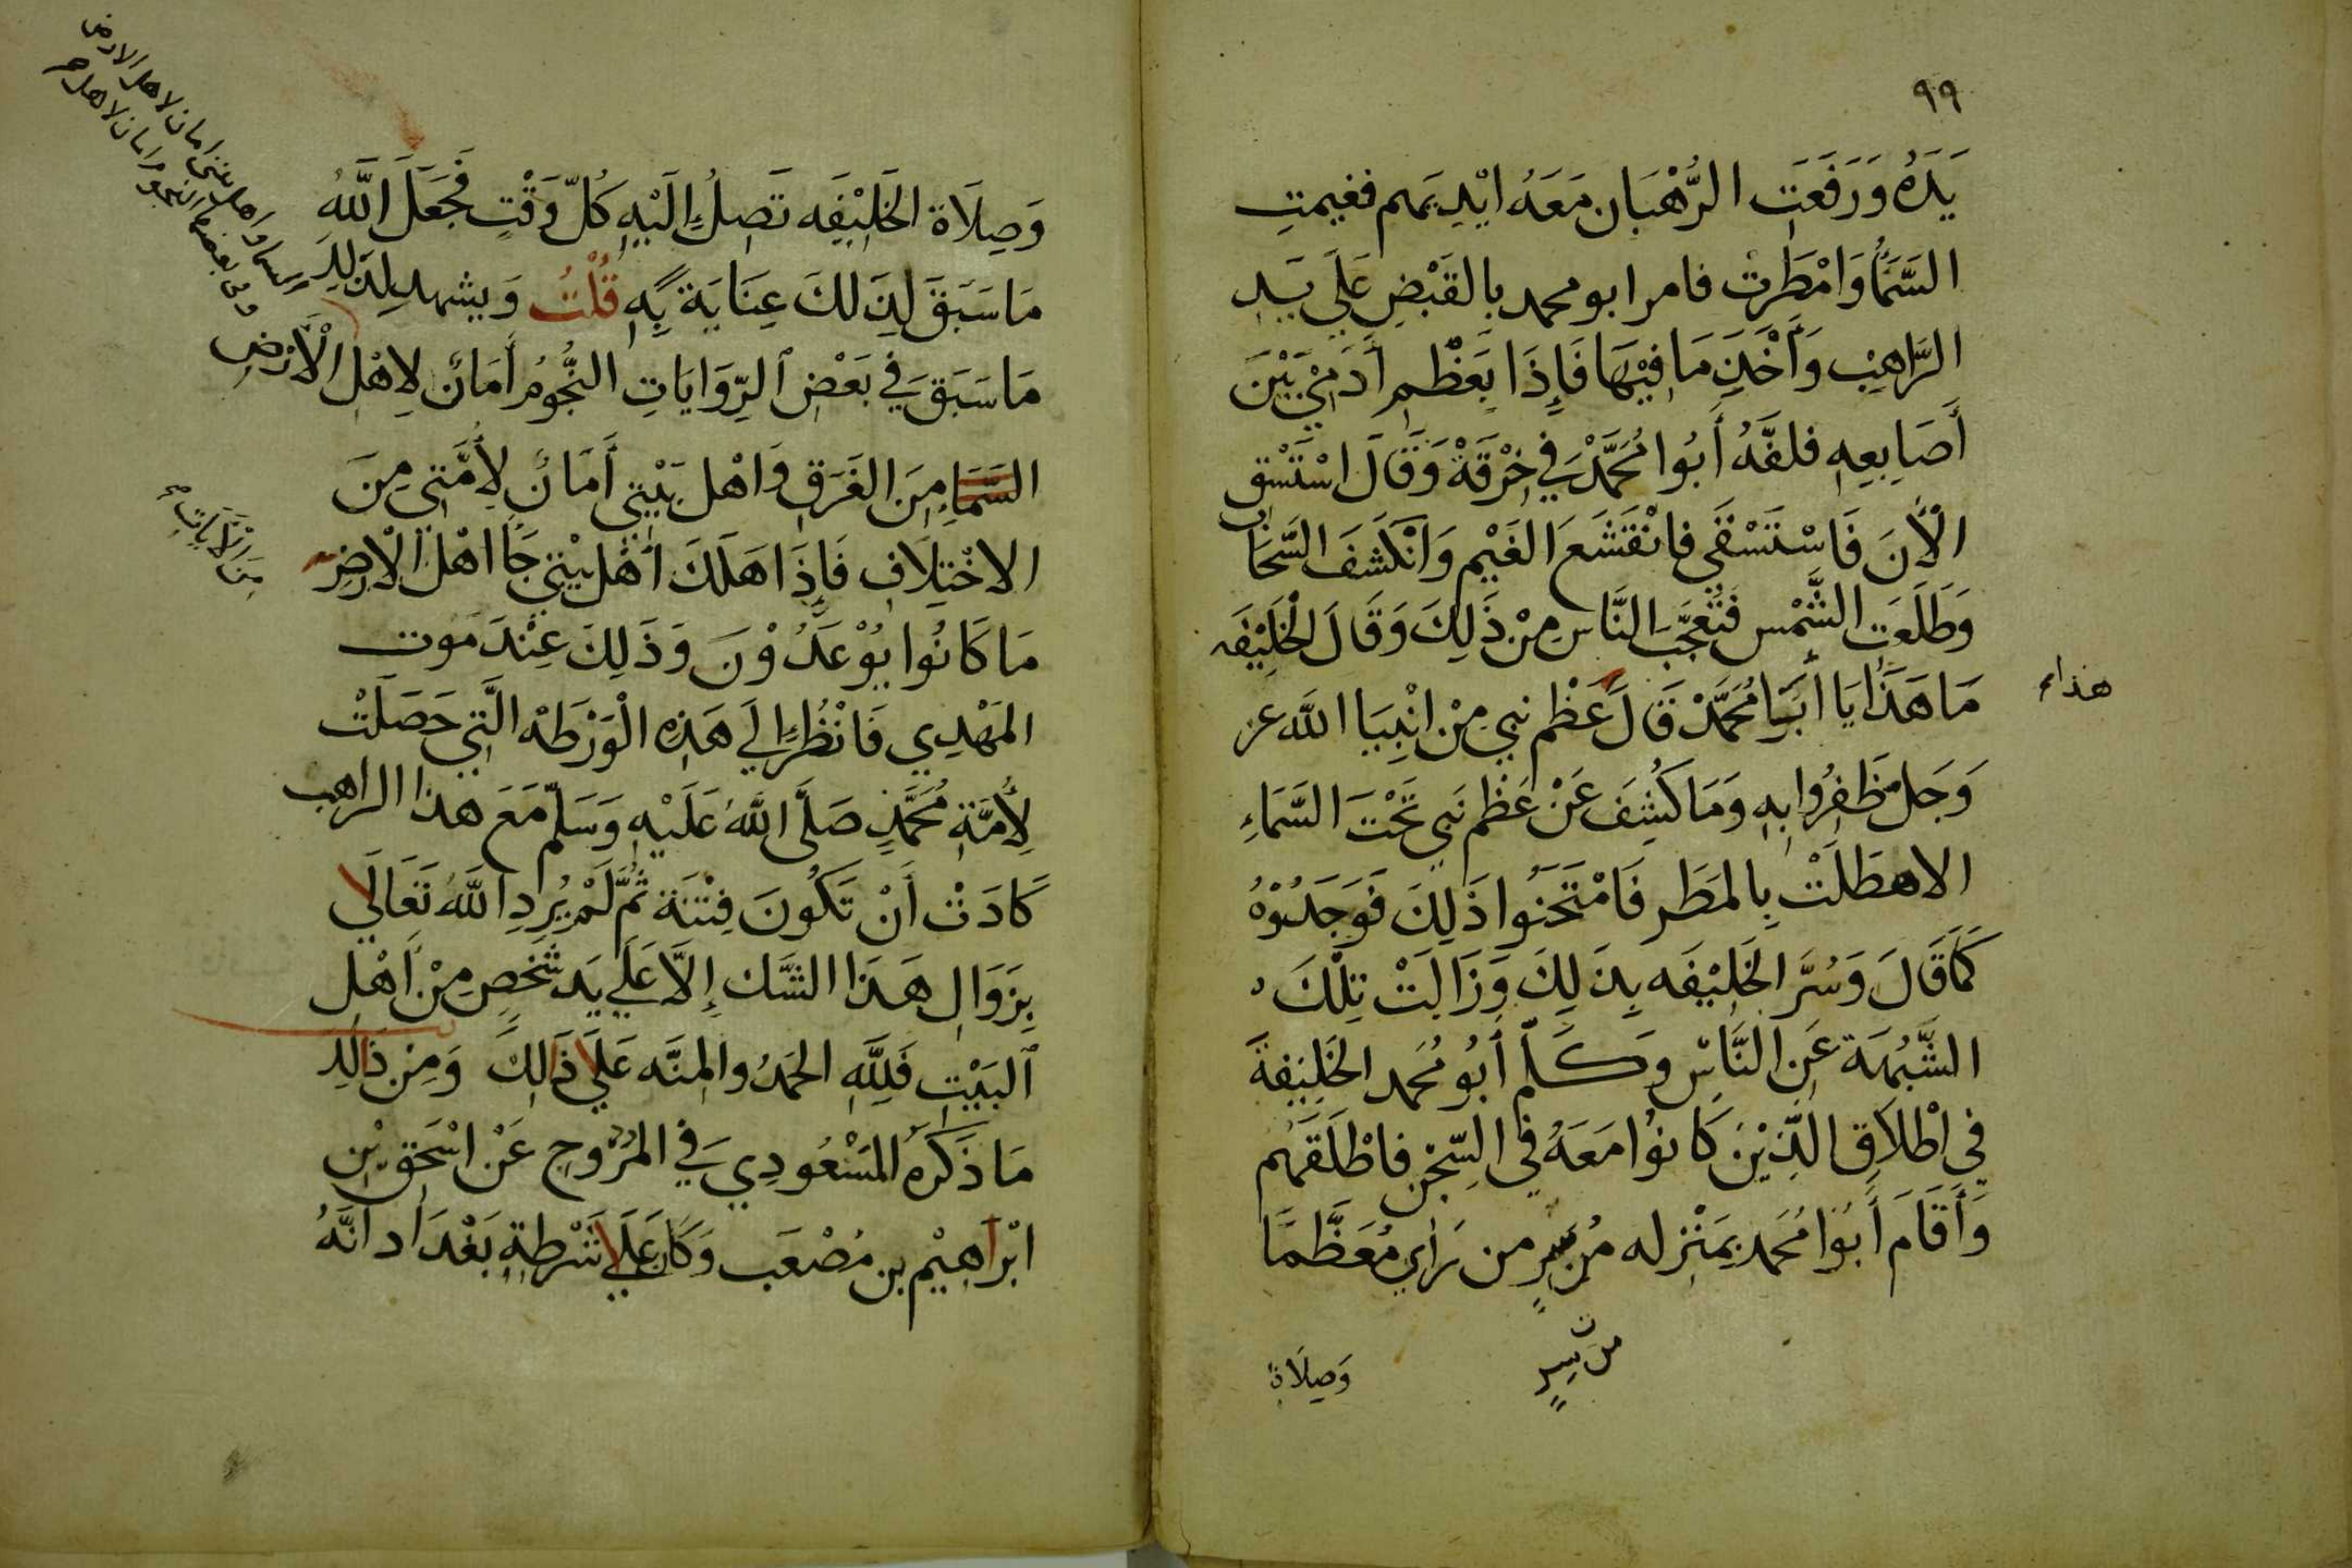 ٩٩
يَدَهُ وَرَفَعَتِ الرُّهْبَان مَعَهُ ايْدِيَهم فغيمتِ
السَّمَاُ وَامْطَرت فامر ابو محمد بالقَبْضِ عَلَي يَدِ
الرَّاهِبِ وَأَخْذِ مَا فِيْهَا فَإِذَا بَعَظْمِ أَدَمِيْ بَيْنَ
أَصَابِعِهِ فلفَّهُ أَبُوا مُحَمَّدْ في خِرْقَةْ وَقَالَ اسْتَسْقِ
الْأَنَ فَاسْتَسْقَي فانْقَشَعَ الغَيْم وَانْكَشَفَ السَّحَاب
وَطَلَعَت الشَّمْس فَتَعَجَّبَ النَّاس مِنْ ذَلِكَ وَقَالَ الْخَلِيْفَه
مَا هَذَا يَا أَبَا مُحَمَّدْ قَالَ عَظْم نبي مِنْ انْبِيَا الله عز
هذا
وَجَل ظَفِرُوا بِهِ وَمَا كُشِفَ عَنْ عَظْم نَبي تَحْتَ السَّمَاءِ
الا هطَلَتْ بِالمَطَر فَامْتَحَنُوا ذَلِكَ فَوَجَدُوْهُ
كَمَا قَالَ وَسُرَّ الخَلِيْفَه بِذَلِكَ وَزَالَتْ تِلْكَ
الشُّبْهَة عَنِ النَّاسْ وكَلّم أَبُو مُحَمد الخَلِيْفَةَ
فِي اطْلَاقِ الَّذِيْنَ كَانُوا مَعَهُ فِي السِّجْنِ فاطْلَقَهُم
وَأَقَامَ أَبُوا مُحَمد بِمَنْزِله مُن سرٍ من رَاي مُعَظَّمًا
من سرٍ
وَصِلَاة
وَصِلَاة الخَلِيْفَه تَصِلُ إِلَيْهِ كُلّ وَقْتٍ فَجَعَلَ اللَّهُ
مَا سَبَقَ لِذَلِكَ عِنَايَة بِهِ قُلْتُ وَيشهد لِذَلِكَ
مَا سَبَقَ فِي بَعْضِ الرِّوَايَاتِ النُّجُومُ أَمَانٌ لِاهْلِ الْأَرْضِ
السَّمَاءِ مِنَ الغَرَقِ وَاهْل بَيْتِي أَمَانٌ لِأُمَّتِي مِنَ
الاخْتِلَافِ فَاِذَا هَلَكَ اهْل بيْتي جَاَ اهْل الْأَرْضِ
مِنَ الْآيَاتِ
مَا كَانُوا يُوْعَدُوْنَ وَذَلِكَ عِنْدَ مَوت
المَهْدِي فَانْظُر إِلَي هَذِهِ الْوَرْطَهْ الَّتِي حَصَلَتْ
لِأُمَّةِ مُحَمَّدٍ صَلَّى اللَّهُ عَلَيْهِ وَسَلّم مَعَ هذا الراهب
كَادَتْ أَنْ تَكُونَ فِتْنَة ثُمَّ لَمْ يُرِدِ اللَّهُ تَعَالَي
بِزَوَالِ هَذَا الشَّك إِلَّا عَلَي يَد شَخصٍ مِنْ أَهْلِ
البَيْتِ فَلِلَّهِ الحَمدُ والمِنَّه عَلَي ذَالِكَ وَمِنْ ذَالِكَ
مَا ذَكَرَهُ المَسْعُودِي فِي المُرُوج عَنْ اسْحَق بْنِ
ابْرَاهِيْم بن مُصْعَب وَكَان عَلَي شُرْطَةِ بَغْدَاد أَنَّهُ